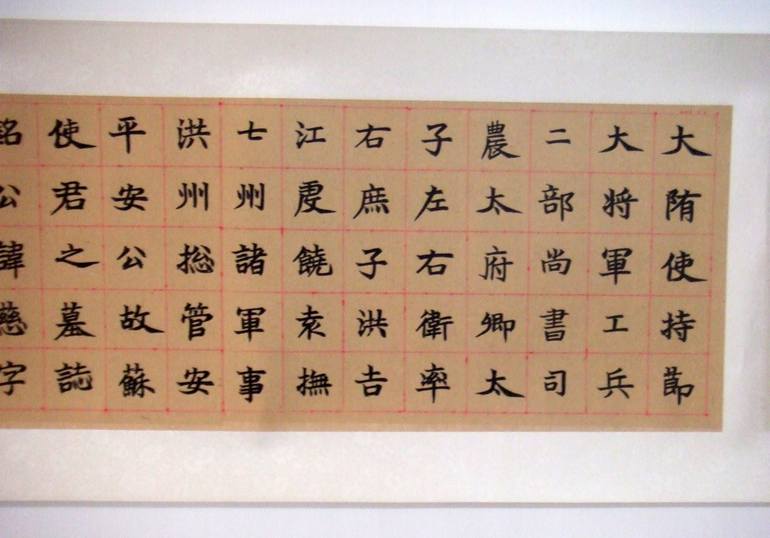 大陏使持莭
大将軍工兵
二部尚書司
農太府卿太
子左右衛率
右庶子洪吉
江虔饒袁撫
七州諸軍事
洪州捴管安
平安公故蘇
使君之墓誌
銘公諱慈字